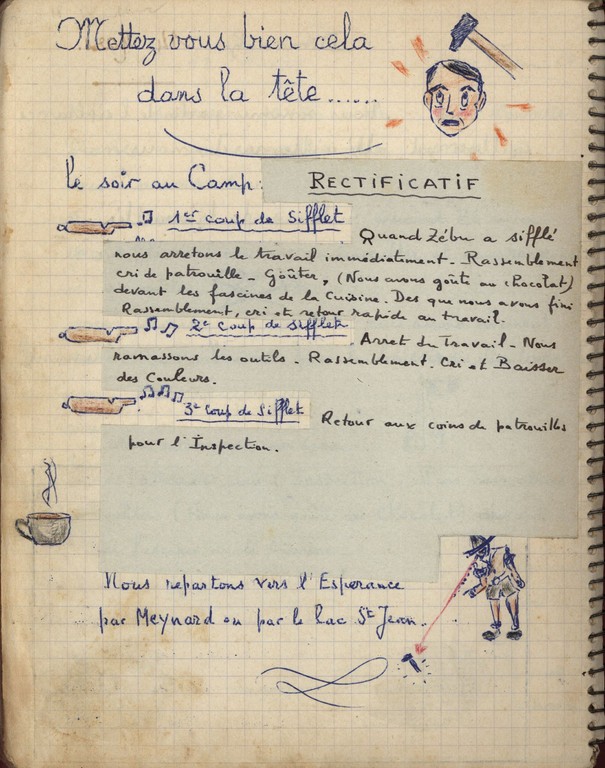 Mettez vous bien cela
dans la tête......
Le soir au Camp:
RECTIFICATIF
1er coup de Sifflet
Quand Zébu a sifflé
nous arretons le travail immédiatement - Rassemblement
cri de patrouille - Goûter, (Nous avons goûté au chocolat)
devant les fascines de la Cuisine. Des que nous avons fini
Rassemblement, cri et retour rapide au travail.
2e coup de sifflet. Arret du Travail - Nous
ramassons les outils - Rassemblement. Cri et Baisser
des Couleurs.
3e coup de Sifflet Retour aux coins de patrouilles
pour l'Inspection.
Nous repartons vers l'Esperance
par Meynard ou par le Lac St Jean.